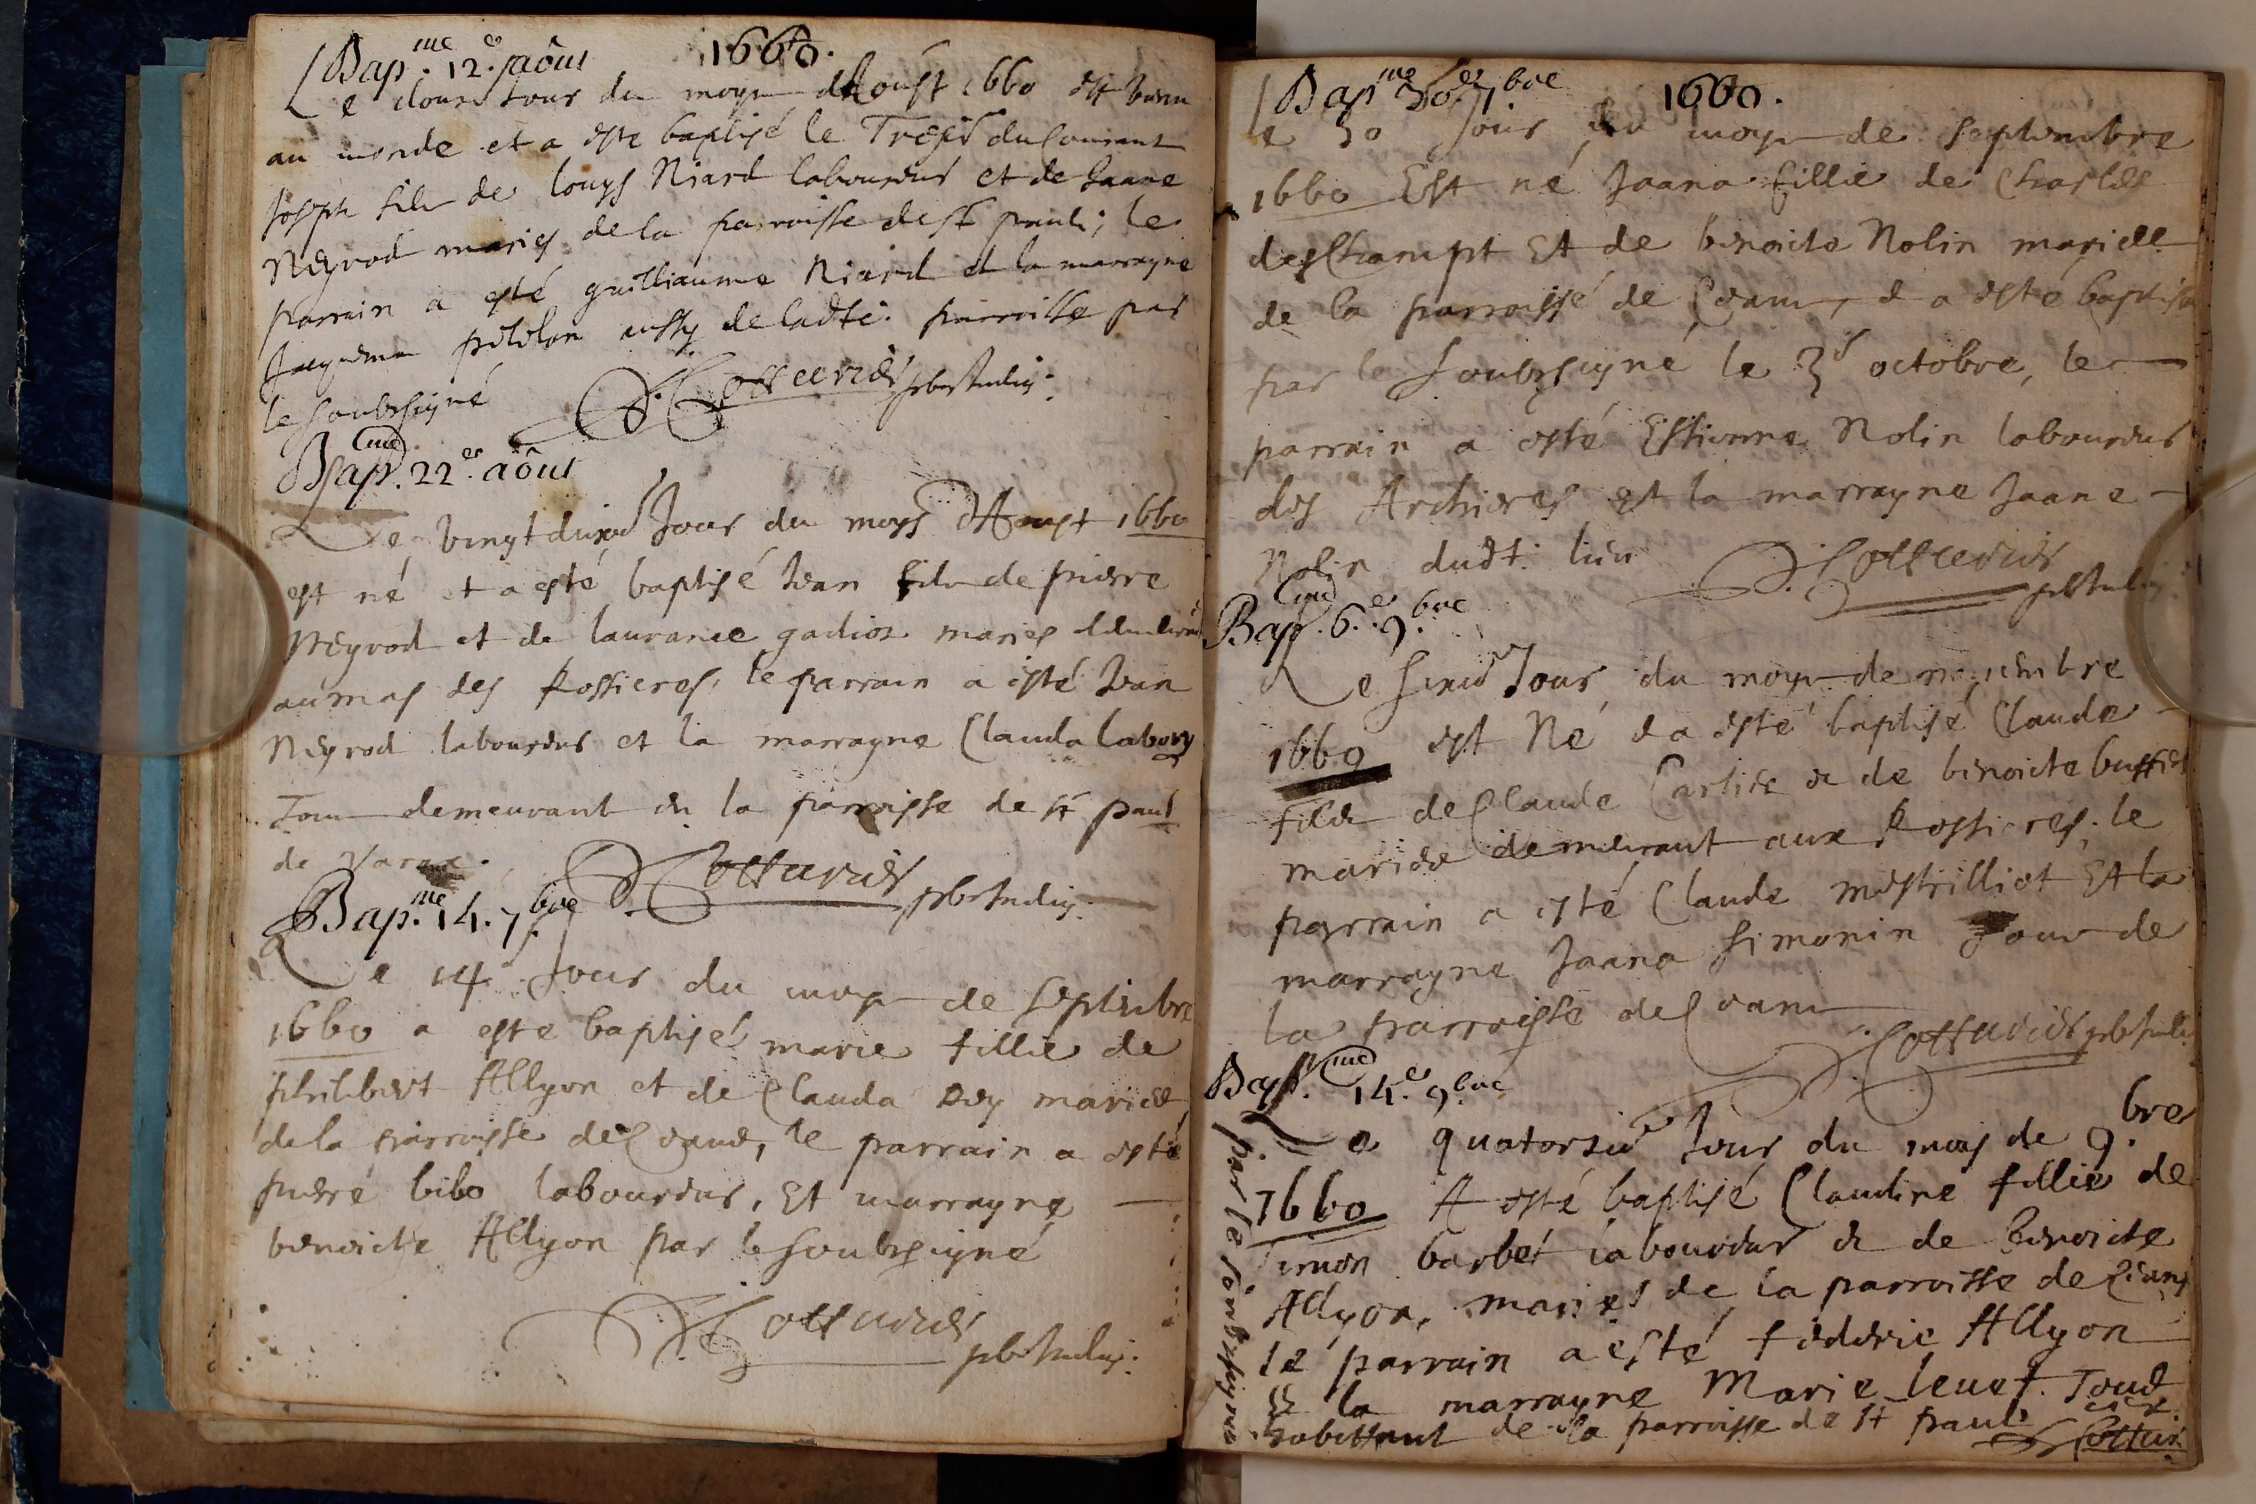 Bap.me 12.e aôut 1660.
Le douzie Jour du moys d'Aoust 1660 est venu
au monde et a este baptisé le Treize du Courant
Joseph filz de Louys Niard laboureur et de Jaane
Neyrod mariés de la parroisse de st paul; le
parrain a esté guilliaume Niard et la marrayne
aussy de ladte. parroisse par
le soubsigné
Bap.me 22.e aôut
Le vingt Jour du moys d'Aoust 1660
est né et a esté baptisé Jean filz de pierre
Neyrod et de laurance gadioz mariés
au mas des Rossieres, le parrain a esté Jean
Neyrod laboureur et la marrayne Clauda Labory
Tous demeurant en la parroisse de st paul
de Varax.
Bap.me 14. 7.bre
Le 14e Jour du moys de septembre
1660 a este baptisé marie fillie de
philibert Allyon et de Clauda Rey mariés
de la parroisse de le parrain a esté
pierre bibo laboureur, Et marrayne
benoicte Allyon par le soubsigné
Bap.me 30.e 7.bre 1660.
Le 30 Jour du moys de septembre
1660 Est né Jaana fillie de Charles
deschampt Et de benoicte Nolin mariés
de la parroisse de & a esté baptisé
par le soubsigné le 3e octobre, le
parrain a esté Estienne Nolin laboureur
des Archieres et la marrayne Jaane
Nolin dudt. lieu
Bap.me 6.e 9.bre
Le sixie Jour du moys de novembre
1660 est Né & a esté baptisé Claude
filz de Claude & de benoicte
mariés demeurant aux Rossieres, le
parrain a esté Claude mestrilliot Et la
marrayne Jaana Simonin Tous de
la parroisse de
Bap.me 14.e 9.bre
Le quatorzie Jour du moys de 9.bre
1660 A esté baptisé Claudine fillie de
Simon barbet laboureur & de benoicte
Allyon, mariés de la parroisse de
le parrain a esté féderic Allyon
Et la marrayne Marie Tous
habittant de la parroisse de st paul
par le soubsigné